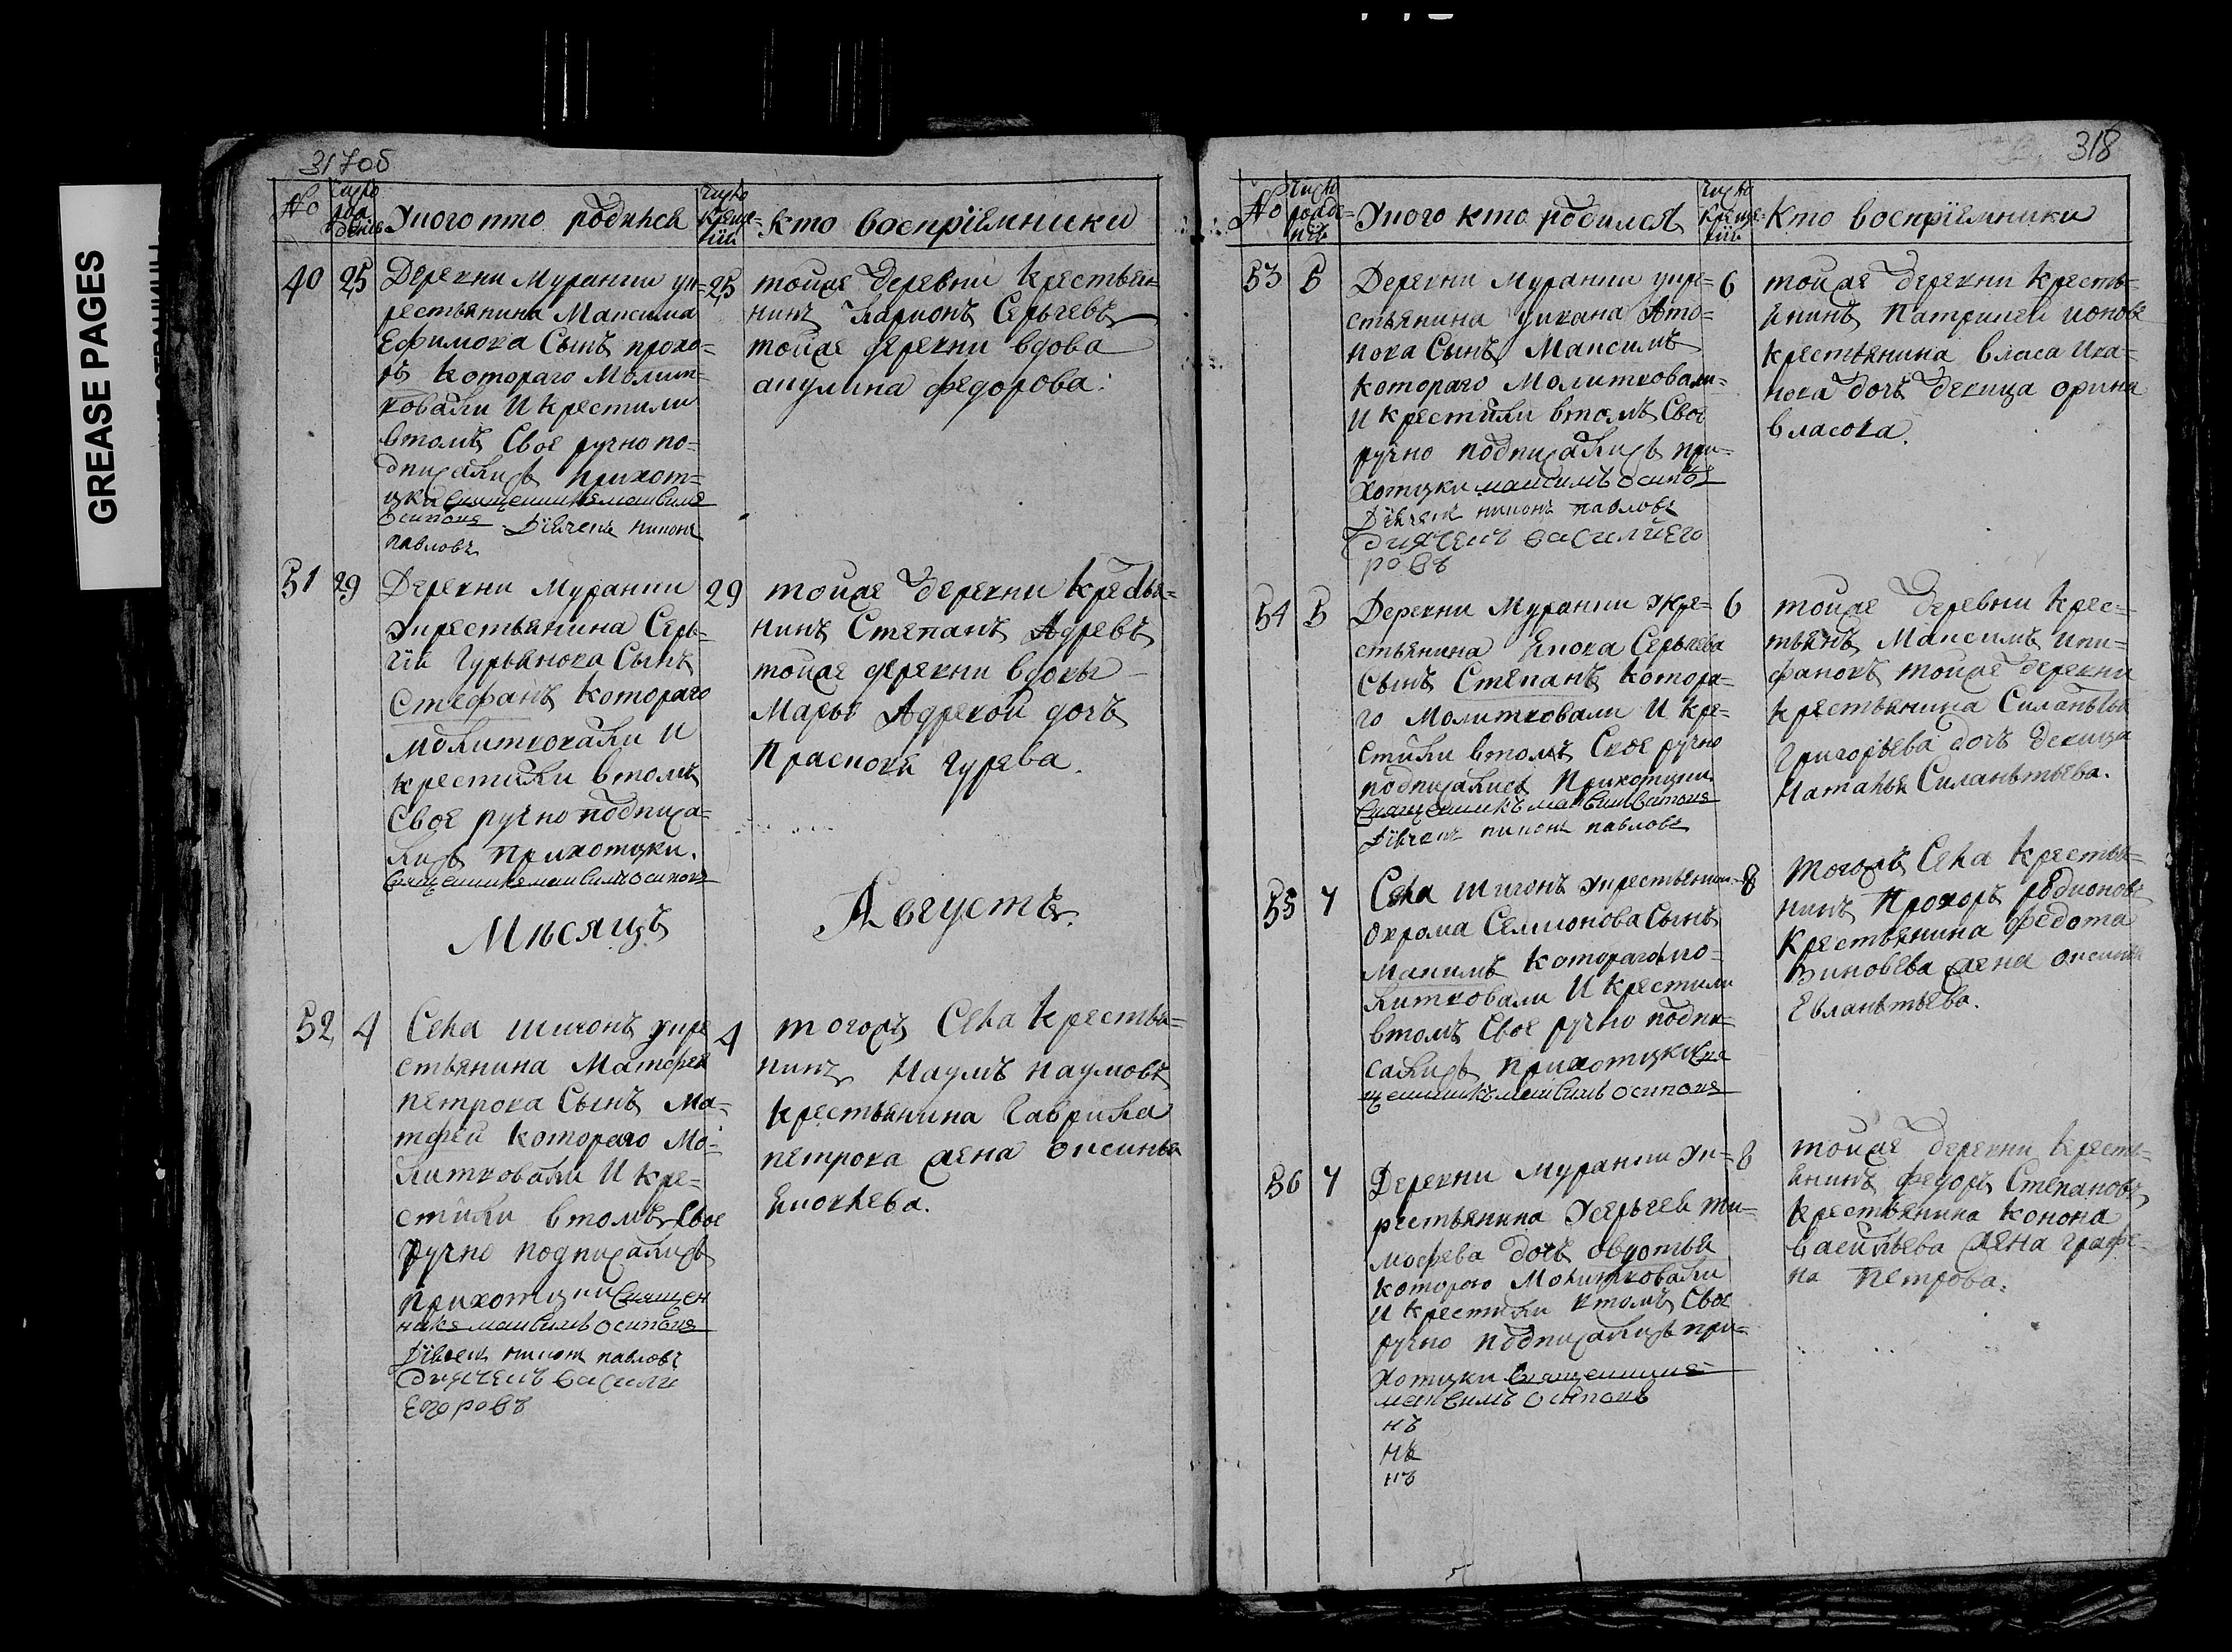 GREASE PAGES
317об
№
Число рождѣнїе
Укого кто родился
Число крещенїи
кто воспрїемники
40
25
Деревни Муранки ук-
рестьянина Максима
Ефимова Сынъ прохо-
ръ котораго Молит-
вовали И крестили
втомъ Свое ручно по-
дписались прихот-
цки священникъ максимъ
осиповъ Дьячекъ никонъ
павловъ
25
тойже деревни крестьян-
нинъ Ларионъ Сергеевъ
тойже деревни вдова
акулина федорова.
51
29
Деревни Муранки
укрестьянина Серь-
гiя Гурьянова Сынъ
Стефанъ котораго
молитвовали И
крестили втомъ
Свое ручно подписа-
лись прихотцки.
священникъ максимъ осиповъ
29
тойже деревни крестья-
нинъ Степанъ Адревъ
тойже деревни вдовы
Марьи Адревой дочь
Прасковя гурева.
Мѣсяцъ
Августъ.
52
4
Села шигонъ укре
стьянина Матфея
петрова Сынъ Ма-
тфеи котораго Мо-
литвовали И кре-
стили втомъ Свое
ручно подписались
прихотцки священ
никъ максимъ осиповъ
Дьячекъ никонъ павловъ
дьячекъ васили
егоровъ
4
тогожъ Села крестья-
нинъ Наумъ наумовъ
крестьянина Гаврила
петрова жена оксинья
Еиовлева.
318
№
Число рождѣ-
нїе
Укого кто родился
Число крещенїи
Кто воспрїемники
53
5
Деревни Муранки укре-
стьянина укана Анто-
нова Сынъ Максимъ
котораго Молитвовали
И крестили втомъ Свое
ручно подписались при-
хотцки максимъ осипов
Дьячекъ никонъ павловъ
дьячекъ василйего
ровъ
6
тойже деревни кресть-
янинъ Патрикей ионов
крестьянина власа Ива-
нова дочь девица орина
власова.
54
5
Деревни Муранки укре-
стьянина Якова Серьгева
Сынъ Степанъ котора-
го Молитвовали И кре-
стили втомъ Свое ручно
подписались Прихотцки
священникъ максимъ осиповъ
Дьячекъ никонъ павловъ
6
тойже деревни крес-
тьянъ Максимъ ипи-
фановъ тойже деревни
крестьянина Силантья
Григорьева дочь девица
Наталья Силантьева.
55
7
Села шигонъ укрестьянин
охрома Семионова Сынъ
Макимъ котораго Мо-
литвовали И крестили
втомъ Свое ручно подпи-
сались прихотцки свя
щенникъ максимъ осиповъ
8
тогожъ Села крестья-
нинъ Прохоръ родионовъ
Крестьянина федота
Зиновева жена оксинья
Евлантьева.
56
7
Деревни Муранки ук-
рестьянина Усерьгея ти-
мофева дочь овдотья
которою Молитвовали
И крестили втомъ Свое
ручно подписались при-
хотцки священникъ
максимъ осиповъ
нъ
нъ
нъ
8
тойже деревни кресть-
янинъ федоръ Степановъ
крестьянина конона
васильева жена графе-
на петрова.